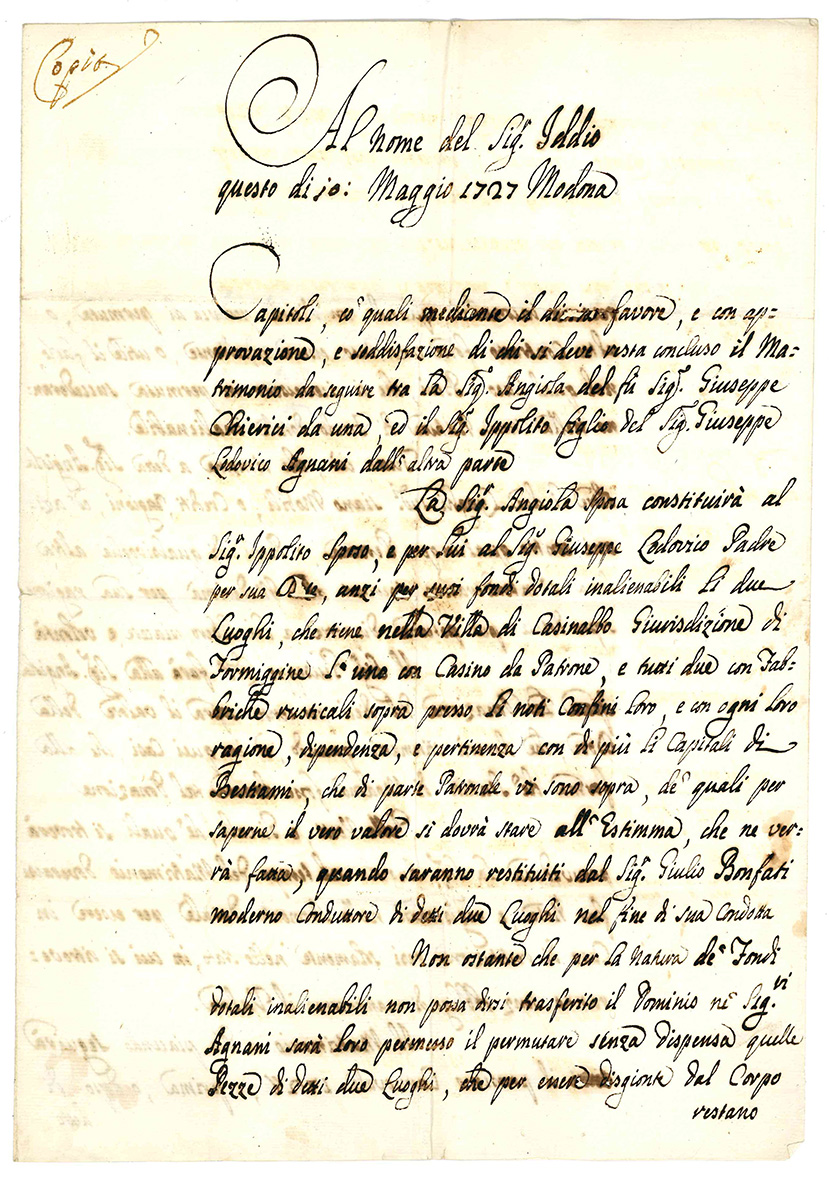 Copia
Al nome del Sig.r Iddio
questo dì 10: Maggio 1727 Modona
Capitoli, co' quali mediante il divino favore, e con ap=
provazione, e soddisfazione di chi si deve resta concluso il Ma=
trimonio da seguire tra la Sig.ra Angiola del fù Sig.r Giuseppe
Chierici da una, ed il Sig.r Ippolito figlio del Sig.r Giuseppe
Lodovico Agnani dall'altra parte
La Sig.ra Angiola sposa constituirà al
Sig.r Ippolito sposo, e per lui al Sig.r Giuseppe Lodovico Padre
per sua, anzi per suoi fondi dotali inalienabili li due
Luoghi, che tiene nella Villa di Casinalbo Giurisdizione di
Formiggine l'uno con Casino da Patrone, e tutti due con Fab=
briche rusticali sopra presso li noti Confini loro, e con ogni loro
ragione, dipendenza, e pertinenza con di più li Capitali di
Bestiami, che di parte Patronale vi sono sopra, de' quali per
saperne il vero valore si dovrà stare all'Estimma, che ne ver=
rà fatta, quando saranno restituiti dal Sig.r Giulio Bonfati
moderno Conduttore di detti due Luoghi nel fine di sua Condotta
Non ostante che per la Natura de' Fondi
dotali inalienabili non possa dirsi trasferito il Dominio ne' Sig.vi
Agnani sarà loro permesso il permutare senza dispensa quelle
Pezze di detti due Luoghi, che per essere disgionte dal Corpo
restano